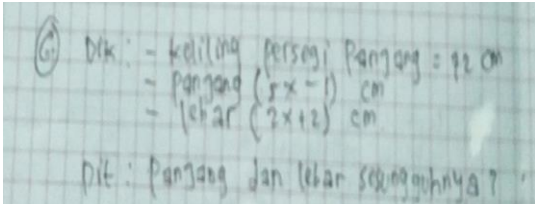 6. Dik : - keliling persegi Panjang = 72 cm
- panjang (5x - 1) cm
- lebar (2x+2) cm
Dit : Panjang dan lebar sesungguhnya ?